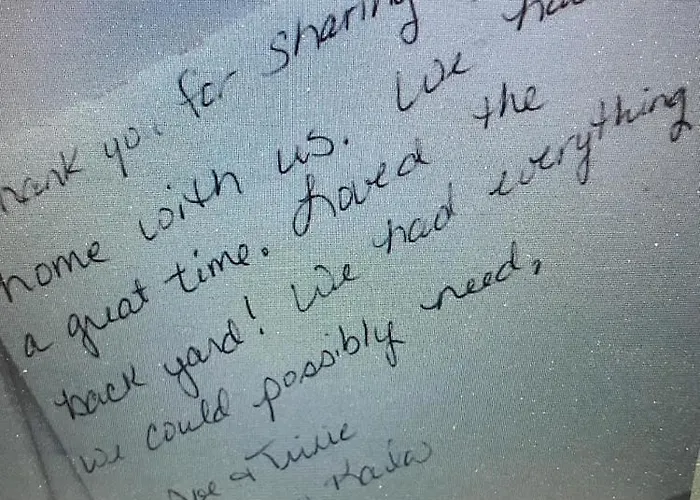 hank you for sharing
home with us. We had
a great time. Loved the
back yard! We had everything
we could possibly need,
&